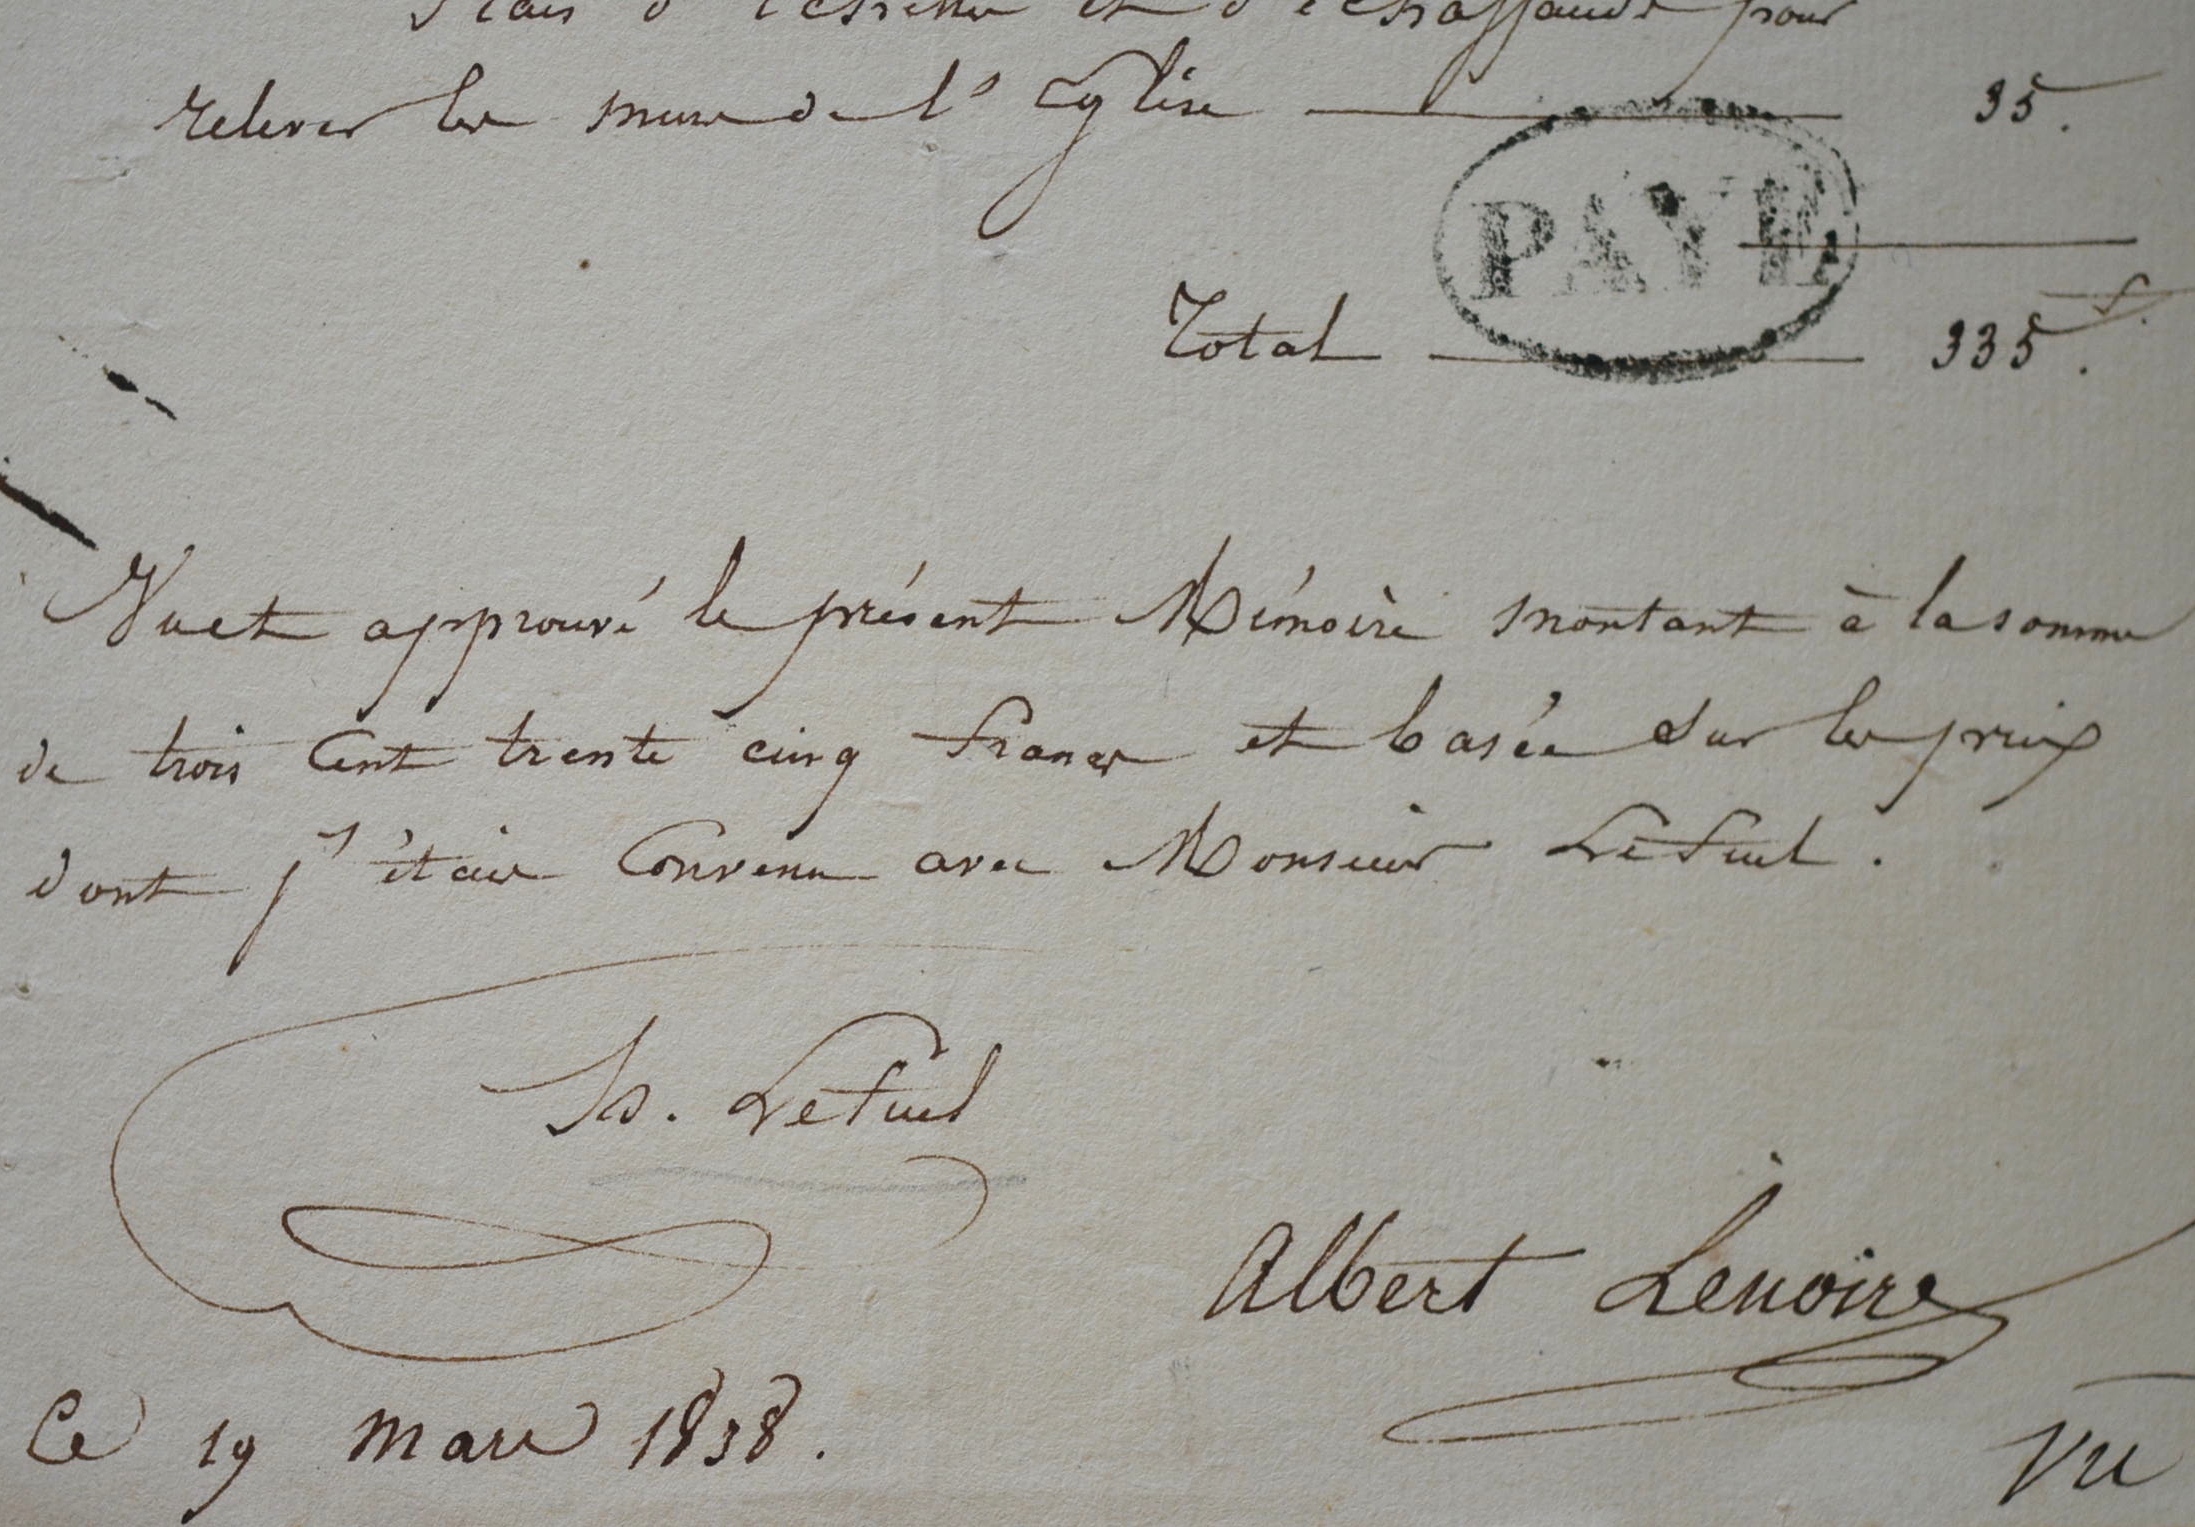 frais d'échelles et d'échaffauds pour
relever les murs de l'Eglise 35.
PAYÉ
Total 335 f.
Vu et approuvé le présent Mémoire montant à la somme
de trois Cent trente cinq francs et basée sur les prix
dont j'étais Convenu avec Monsieur Lefuel.
H. Lefuel
Albert Lenoire
Ce 19 Mars 1838.
Vu